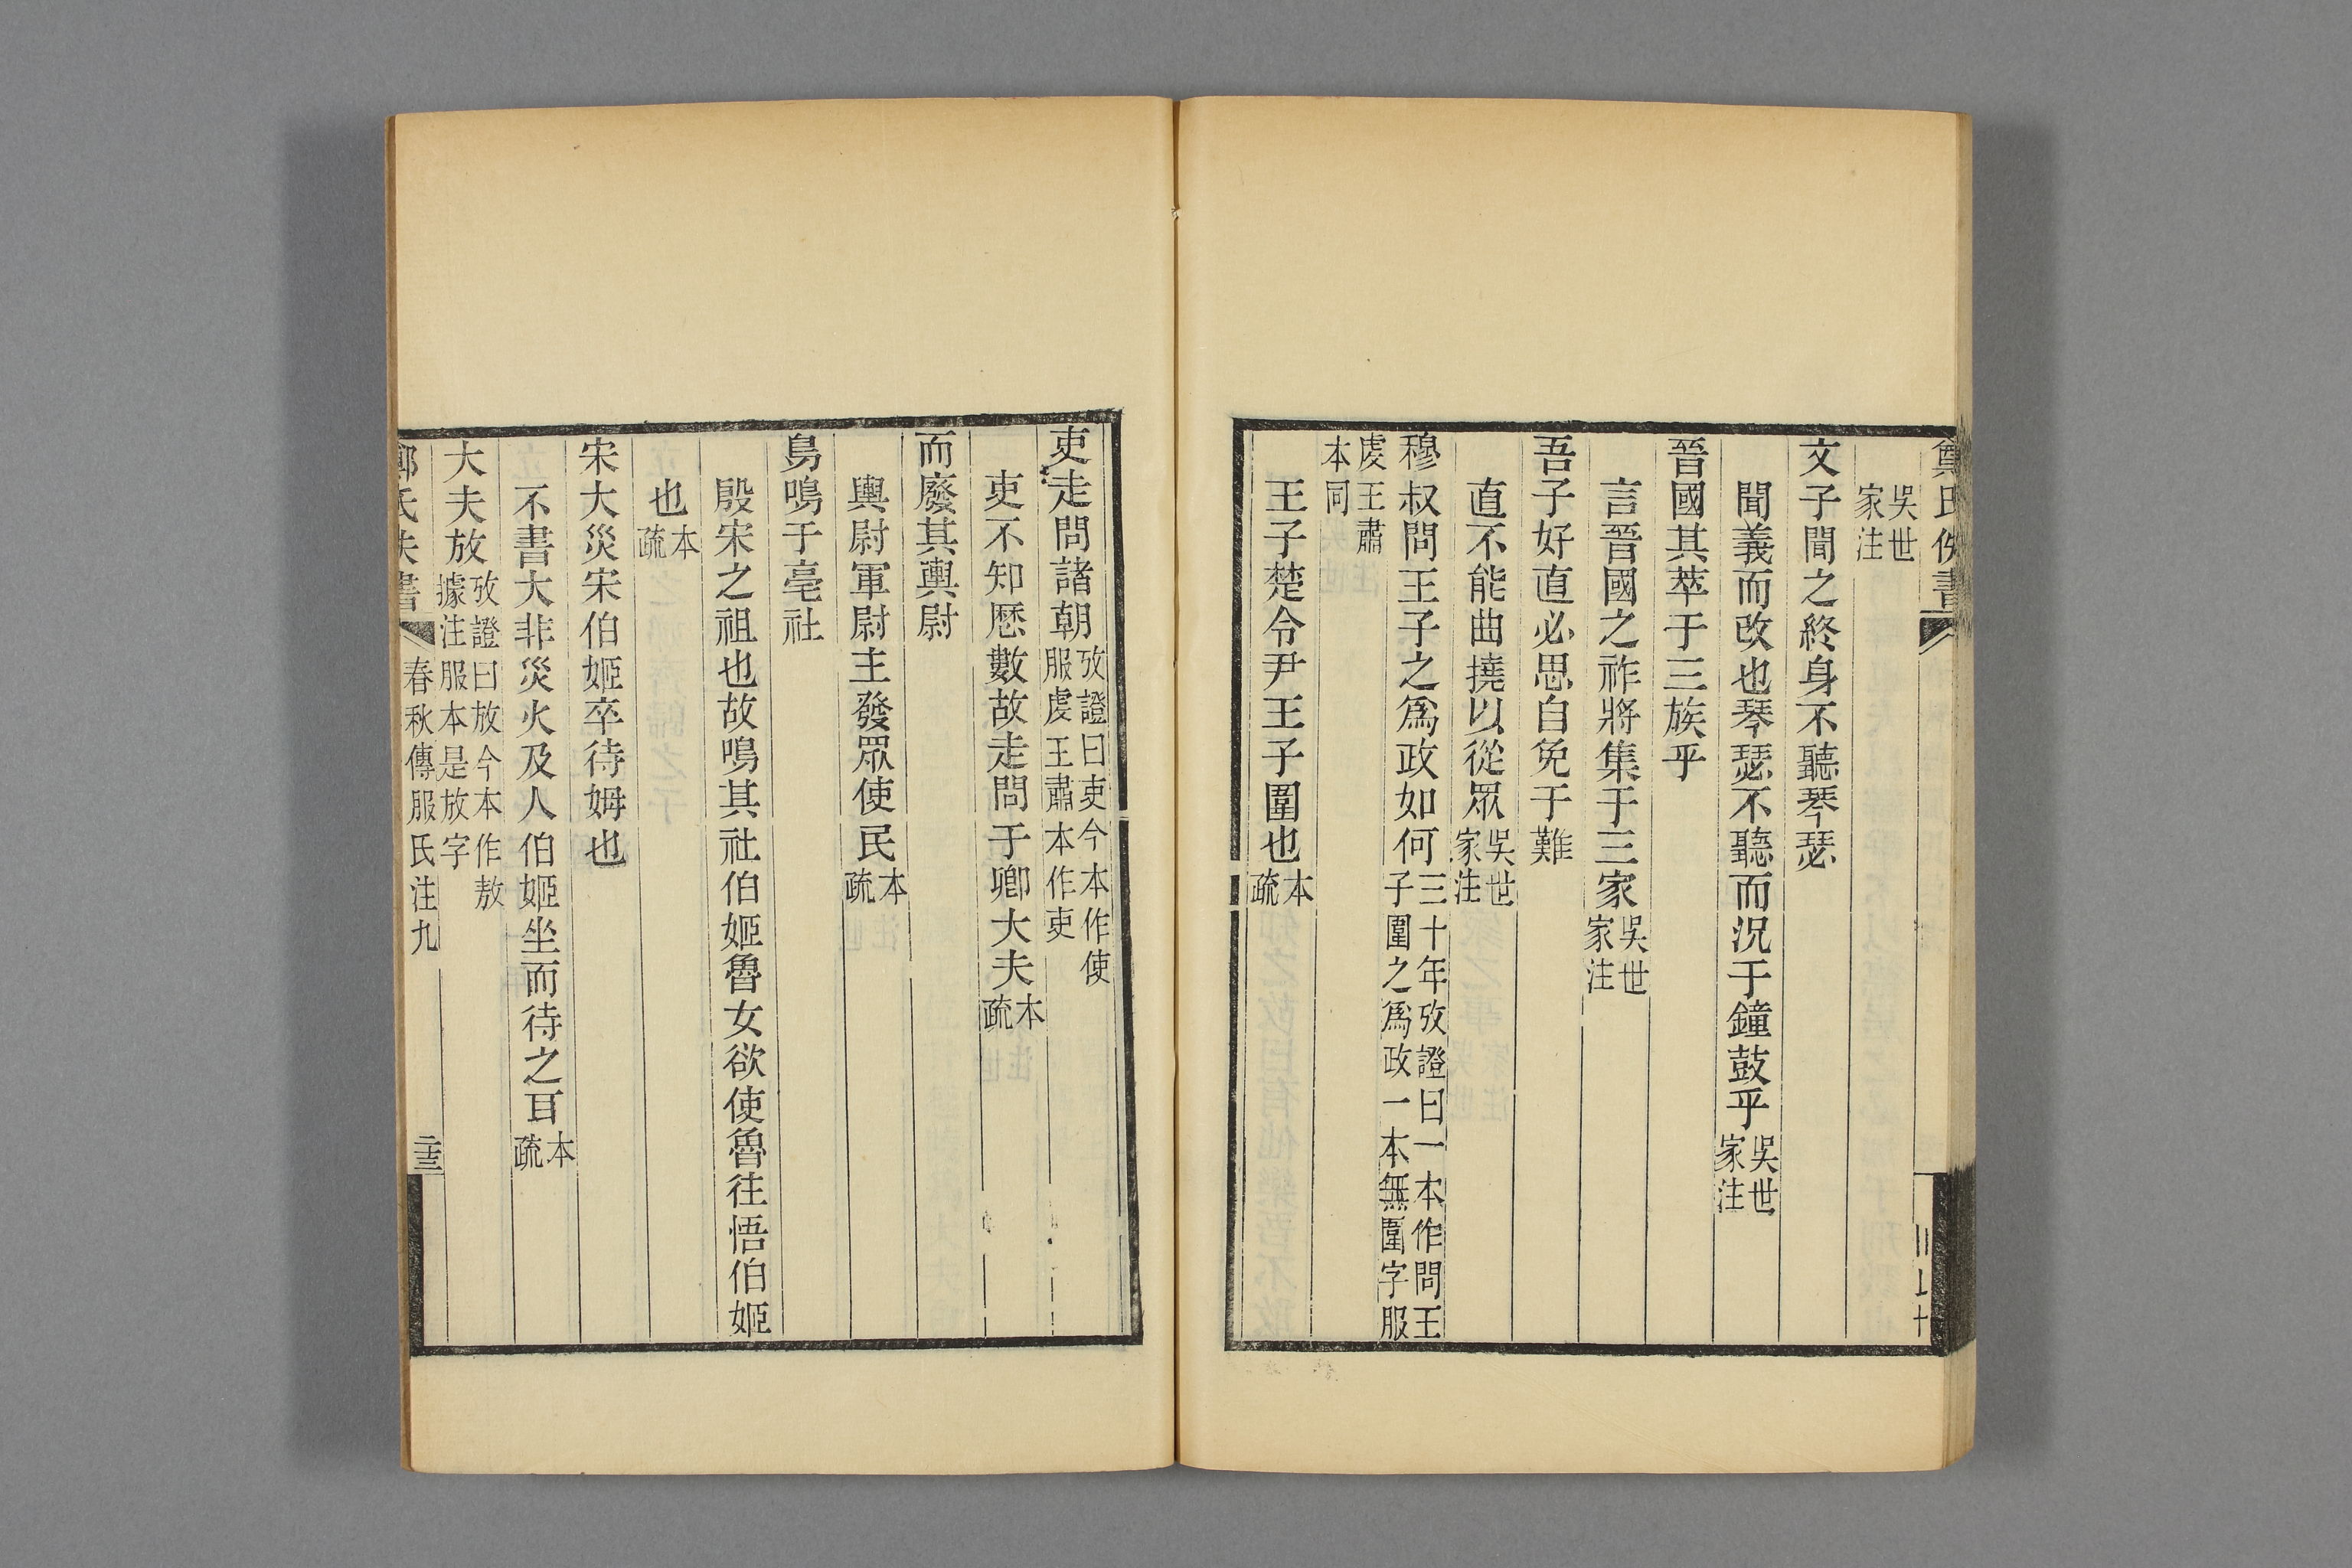 吳世
家注
文子聞之終身不聽琴瑟
聞義而改也琴瑟不聽而況于鐘鼓乎吳世
家注
晉國其萃于三族乎
言晉國之祚將集于三家吳世
家注
吾子好直必思自免于難
直不能曲撓以從眾吳世
家注
穆叔問王子之爲政如何三十年攷證曰一本作問王
子圍之爲政一本無圍字服
虔王肅
本同
王子楚令尹王子圍也本
疏
吏走問諸朝攷證曰吏今本作使
服虔王肅本作吏
吏不知厯數故走問于卿大夫本
疏
而廢其輿尉
輿尉軍尉主發眾使民本
疏
鳥鳴于亳社
殷宋之祖也故鳴其社伯姬魯女欲使魯往悟伯姬
也本
疏
宋大災宋伯姬卒待姆也
不書大非災火及人伯姬坐而待之耳本
疏
大夫放攷證曰放今本作敖
據注服本是放字
春秋傳服氏注九